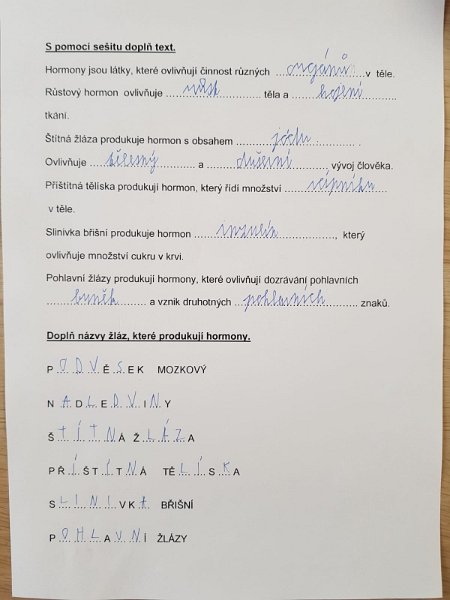 S pomocí sešitu doplň text.
Hormony jsou látky, které ovlivňují činnost různých orgánů v těle.
Růstový hormon ovlivňuje růst těla a hojení
tkání.
Štítná žláza produkuje hormon s obsahem jódu.
Ovlivňuje tělesný a duševní vývoj člověka.
Příštitná tělíska produkují hormon, který řídí množství vápníku
v těle.
Slinivka břišní produkuje hormon inzulín, který
ovlivňuje množství cukru v krvi.
Pohlavní žlázy produkují hormony, které ovlivňují dozrávání pohlavních
buněk a vznik druhotných pohlavních znaků.
Doplň názvy žláz, které produkují hormony.
PODVĚSEK MOZKOVÝ
NADLEDVINY
ŠTÍTNÁ ŽLÁZA
PŘÍŠTÍTNÁ TĚLÍSKA
SLINIVKA BŘIŠNÍ
POHLAVNÍ ŽLÁZY